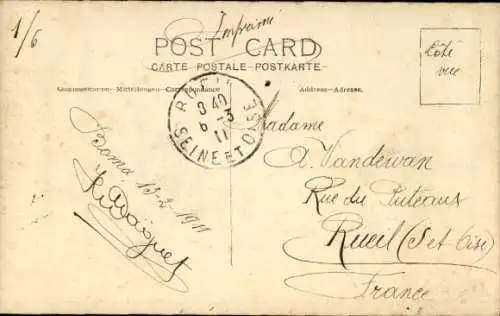 1/6
Imprimé
POST CARD
CARTE POSTALE - POSTKARTE
Communication - Mitteilungen - Correspondance
Address - Adresse.
Côté
vue
3 40
6 - 3
11
SEINE ET OISE
Boma, 13-2-1911
Madame
A. Vandewan
Rue du Puteaux
Rueil (S et Oise)
France